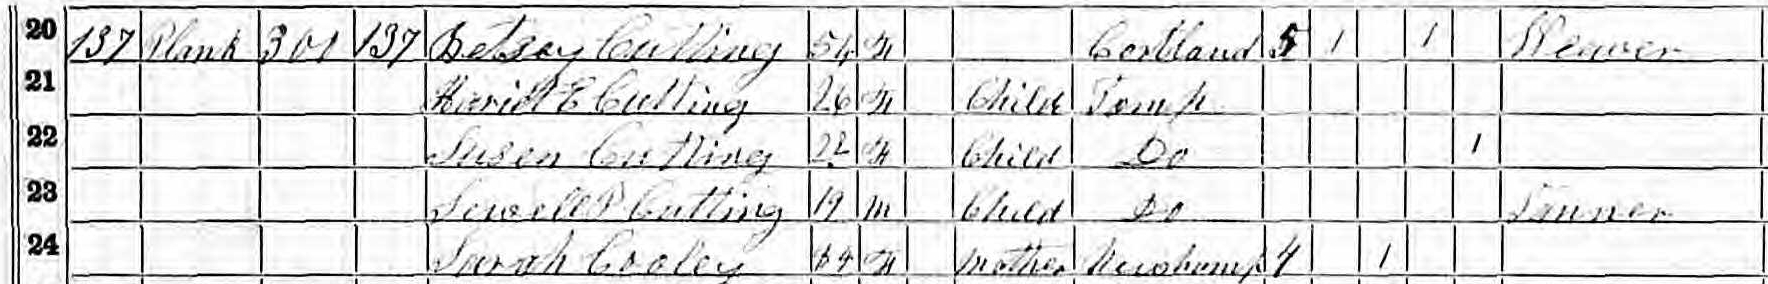 20 137 Plank 301 137 Betsey Cutting 54 F Cortland 5 1 1 Weaver
21 Hariet E Cutting 26 F Child Tomp
22 Susen Cutting 22 F Child Do 1
23 Lowell P Cutting 19 M Child Do Tanner
24 Sarah Cooley F Mother Newhamp 4 1